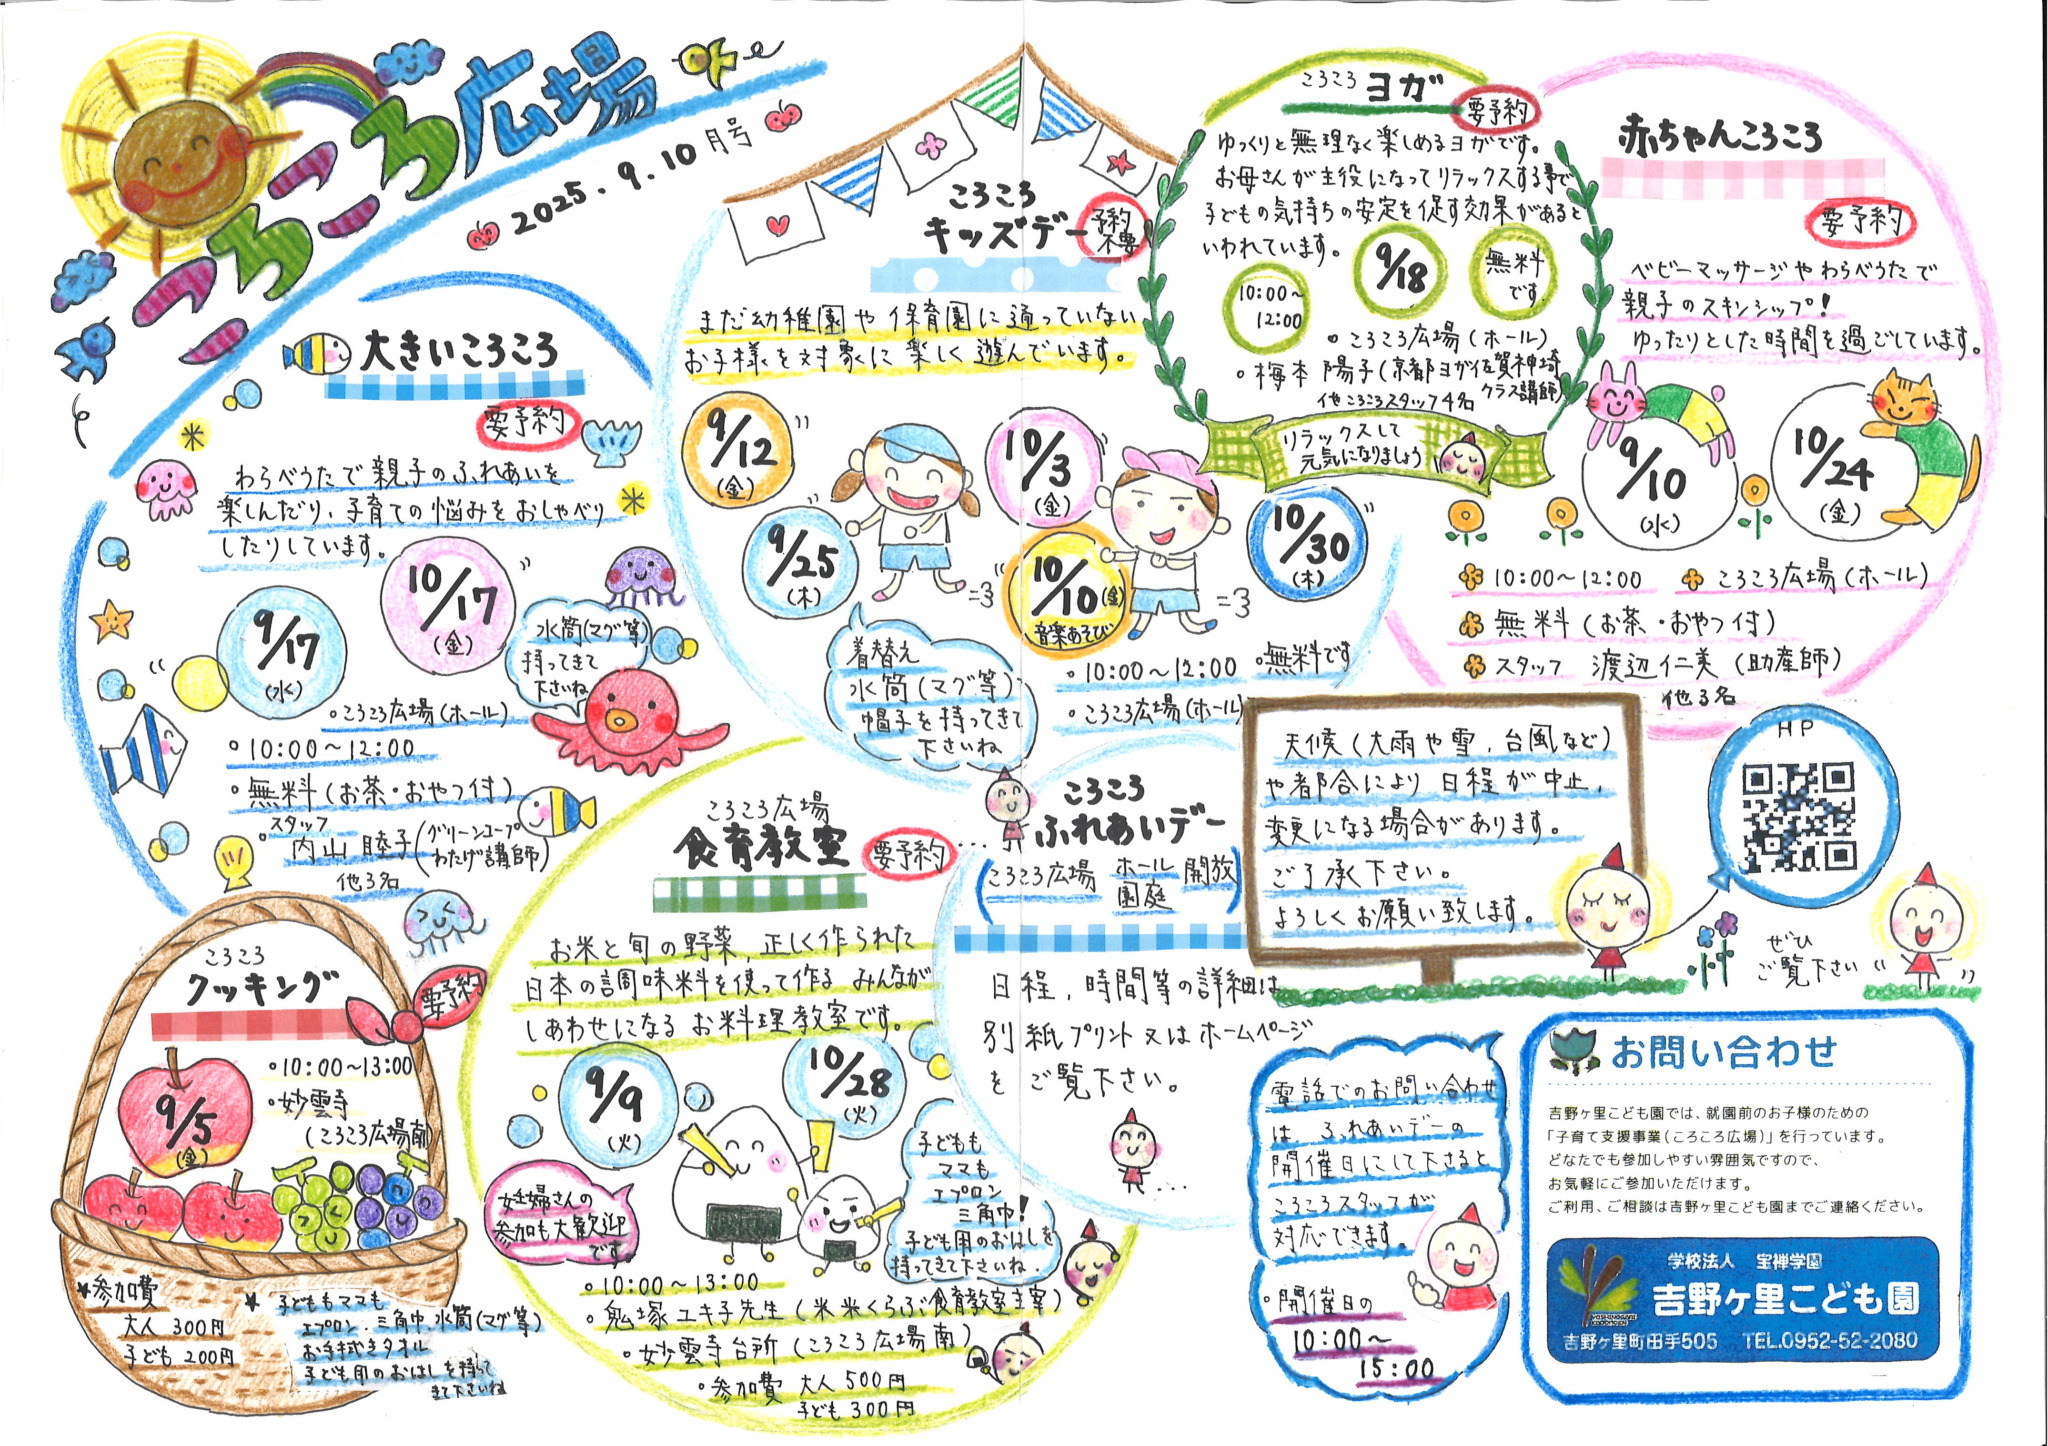 ころころ広場
2025.9.10月号
大きいころころ
要予約
わらべうたで親子のふれあいを
楽しんだり、子育ての悩みをおしゃべり
したりしています。
9/17
(水)
10/17
(金)
水筒(マグ等)
持ってきて
下さいね
・ころころ広場(ホール)
・10:00~12:00
・無料(お茶・おやつ付)
・スタッフ
内山 睦子(グリーンコープ
わたげ講師)
他3名
ころころ
キッズデー
予約
不要
まだ幼稚園や保育園に通っていない
お子様を対象に楽しく遊んでいます。
9/12
(金)
9/25
(木)
10/3
(金)
10/10(金)
音楽あそび
10/30
(木)
着替え
水筒(マグ等)
帽子を持ってきて
下さいね
・10:00~12:00 ・無料です
・ころころ広場(ホール)
ころころ ヨガ
要予約
ゆっくりと無理なく楽しめるヨガです。
お母さんが主役になってリラックスする事で
子どもの気持ちの安定を促す効果があると
いわれています。
10:00~
12:00
9/18
無料
です
・ころころ広場(ホール)
・梅本 陽子(京都ヨガ佐賀神埼
クラス講師)
他ころころスタッフ4名
リラックスして
元気になりましょう
赤ちゃんころころ
要予約
ベビーマッサージやわらべうたで
親子のスキンシップ!
ゆったりとした時間を過ごしています。
9/10
(水)
10/24
(金)
10:00~12:00 ころころ広場(ホール)
無料(お茶・おやつ付)
スタッフ 渡辺仁美(助産師)
他3名
天候(大雨や雪、台風など)
や都合により日程が中止、
変更になる場合があります。
ご了承下さい。
よろしくお願い致します。
HP
ぜひ
ご覧下さい
ころころ
クッキング
要予約
・10:00~13:00
・妙雲寺
(ころころ広場南)
9/5
(金)
★参加費
大人 300円
子ども 200円
★子どももママも
エプロン、三角巾 水筒(マグ等)
お手拭きタオル
子ども用のおはしを持って
きて下さいね
ころころ広場
食育教室
要予約
お米と旬の野菜、正しく作られた
日本の調味料を使って作る みんなが
しあわせになる お料理教室です。
9/9
(火)
10/28
(火)
妊婦さんの
参加も大歓迎
です。
子どもも
ママも
エプロン
三角巾!
子ども用のおはしを
持ってきて下さいね。
・10:00~13:00
・鬼塚ユキ子先生(米米くらぶ食育教室主宰)
・妙雲寺台所(ころころ広場南)
・参加費 大人 500円
子ども 300円
ころころ
ふれあいデー
(ころころ広場 ホール 園庭 開放)
日程、時間等の詳細は
別紙プリント又はホームページ
をご覧下さい。
電話でのお問い合わせ
は、ふれあいデーの
開催日にして下さると
ころころスタッフが
対応できます。
・開催日の
10:00~
15:00
お問い合わせ
吉野ヶ里こども園では、就園前のお子様のための
「子育て支援事業(ころころ広場)」を行っています。
どなたでも参加しやすい雰囲気ですので、
お気軽にご参加いただけます。
ご利用、ご相談は吉野ヶ里こども園までご連絡ください。
学校法人 宝禅学園
吉野ヶ里こども園
吉野ヶ里町田手505 TEL.0952-52-2080